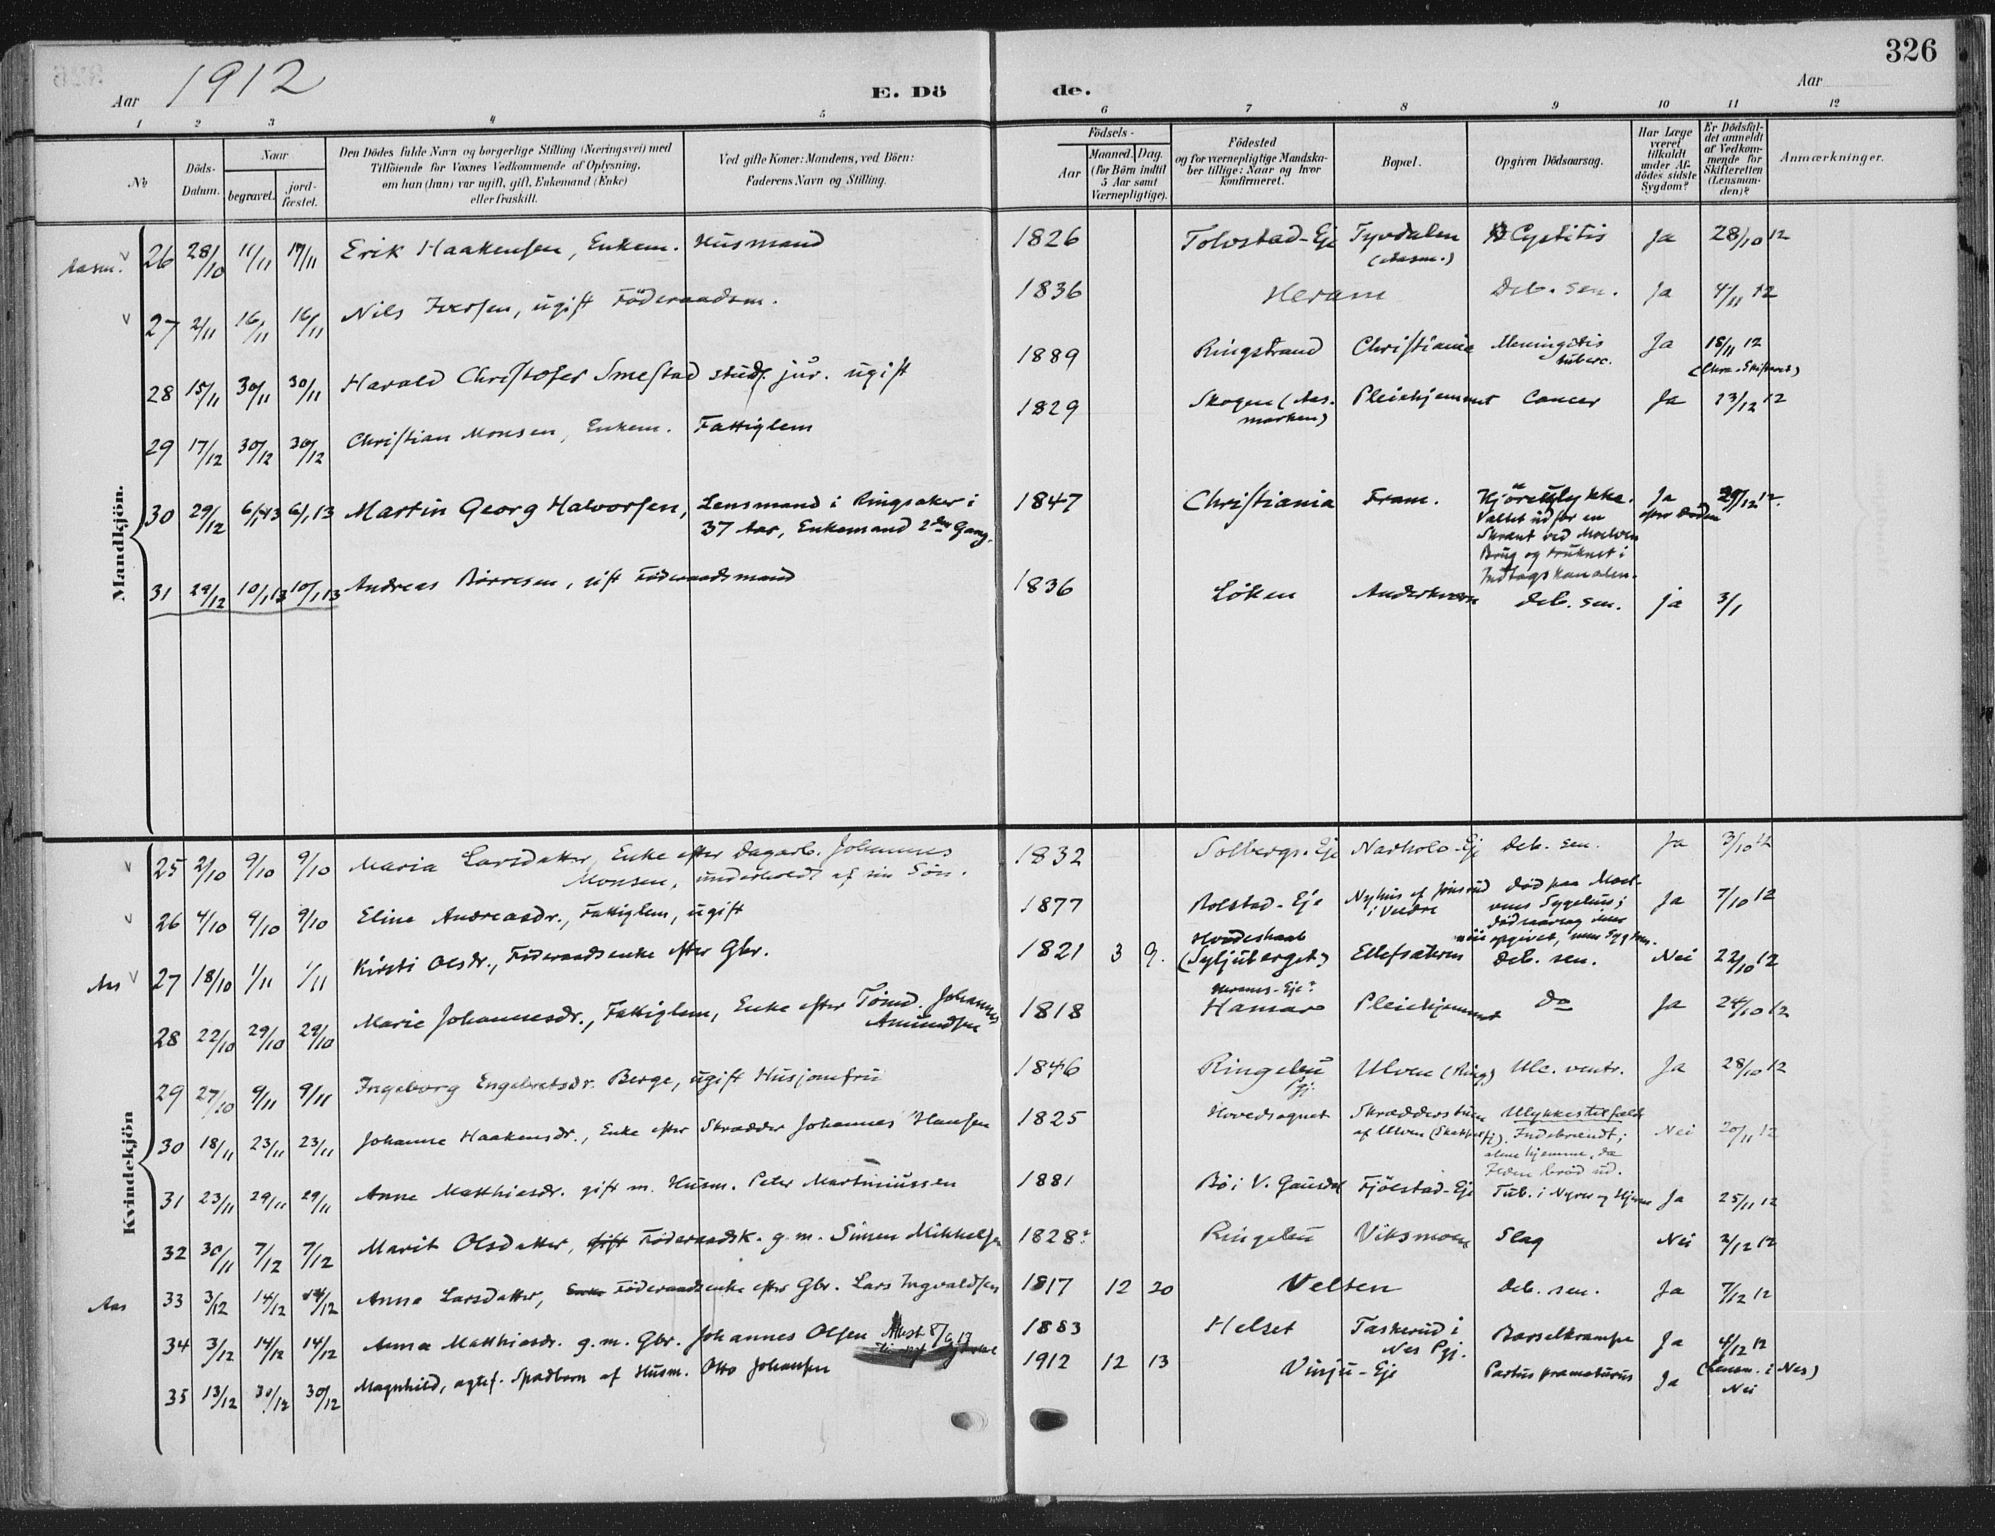 326
Aar 1912
E. Dö de.
Aar
1 2 3 4 5 6 7 8 9 10 11 12
№
Döds-Datum.
Naar
begravet.
jord-fæstet.
Den Dödes fulde Navn og borgerlige Stilling (Næringsvei) med Tilföiende for Voxnes Vedkommende af Oplysning, om han (hun) var ugift, gift, Enkemand (Enke) eller fraskilt.
Ved gifte Koner: Mandens, ved Börn: Faderens Navn og Stilling.
Födsels-
Aar
Maaned. Dag.
(for Börn indtil 5 Aar samt Værnepligtige).
Födested og for værnepligtige Mandskaber tillige: Naar og hvor Konfirmeret.
Bopæl.
Opgiven Dödsaarsag.
Har Læge været tilkaldt under Afdödes sidste Sygdom?
Er Dödsfaldet anmeldt af Vedkommende for Skifteretten (Lensmanden)?
Anmærkninger.
Mandkjön.
Aasm. 26 28/10 11/11 17/11 Erik Haakensen, Enkem. Husmand 1826 Tolvstad-Eje Tyvdalen (Aasm.) Cystitis Ja 28/10 12
27 2/11 16/11 16/11 Nils Iversen, ugift Föderaadsm. 1836 Heram Deb. sen. Ja 4/11 12
28 15/11 30/11 30/11 Harald Christofer Smestad stud. jur. ugift 1889 Ringstrand Christiania Meningitis tuberc. Ja 18/11 12 (Chra. Skifteret)
29 17/12 30/12 30/12 Christian Monsen, Enkem. Fattiglem 1829 Skogen (Aasmarken) Pleiehjemmet Cancer Ja 23/12 12
30 29/12 6/1 13 6/1 13 Martin Georg Halvorsen, Lensmand i Ringsaker i 37 Aar, Enkemand 2den Gang. 1847 Christiania Fram. Kjöreulykke. Væltet ud for en Skrænt ved Moelven Brug og druknet i Indtagskanalen. Ja efter Döden 29/12 12.
31 29/12 10/1 13 10/1 13 Andreas Börresen, gift Föderaadsmand 1836 Löken Anderkvern Deb. sen. ja 3/1
Kvindekjön
25 2/10 9/10 9/10 Maria Larsdatter, Enke efter Dagarb. Johannes Monsen, underholdt af sin Sön. 1832 Solbergs-Eje Narholo-Ej Deb. sen. Ja 3/10 12
26 4/10 9/10 9/10 Eline Andreasdr., Fattiglem, ugift 1877 Bolstad-Eje Nyhus af i Veldre Död paa Sygehus; Ja 7/10 12
Aas 27 18/10 1/11 1/11 Kirsti Olsdr., Föderaadsenke efter Gbr. 1821 3 9. (Syljuberget) Ellefsæteren Deb. sen. Nei 22/10 12
28 22/10 29/10 29/10 Marie Johannesdr., Fattiglem, Enke efter Tömd. Johannes Amundsen 1818 Hamar Pleiehjemmet Do Ja 24/10 12
29 27/10 9/11 9/11 Ingeborg Engebretsdr. Berge, ugift Husjomfru 1846 Ringebu Pgj. Ulven (Ring) Ulc. ventr. Ja 28/10 12
30 18/11 23/11 23/11 Johanne Haakensdr., Enke efter Skrædder Johannes Hansen 1825 Hovedsognet Skrædderstuen af Ulven Ulykkestilfælde Indebrændt; alene hjemme, da Ilden bröd ud. Nei 20/11 12
31 23/11 29/11 29/11 Anne Matthiasdr. gift m. Husm. Peter Martiniussen 1881 Bö i V. Gausdal Fjölstad-Eje Tub. i Nyrer og Hjerne Ja 25/11 12
32 30/11 7/12 7/12 Marit Olsdatter, gift Föderaadsk. g. m. Simen Mikkelsen 1828? Ringebu Viksmoen Slag Nei 2/12 12
Aas 33 3/12 14/12 14/12 Anne Larsdatter, Enke Föderaadsenke efter Gbr. Lars Ingvaldsen 1817 12 20 Velten Deb. sen. Ja 7/12 12
34 3/12 14/12 14/12 Anna Matthiasdr. g. m. Gbr. Johannes Olsen Attest 8/9 17 1883 Helset Taskerud i Nes Pgj. Barselkrampe Ja 4/12 12 (Lensm. i Nes)
35 13/12 30/12 30/12 Magnhild, agtef. Spædbarn af Husm. Otto Johansen 1912 12 13 Vinju-Eje Partus præmaturus Ja Nei